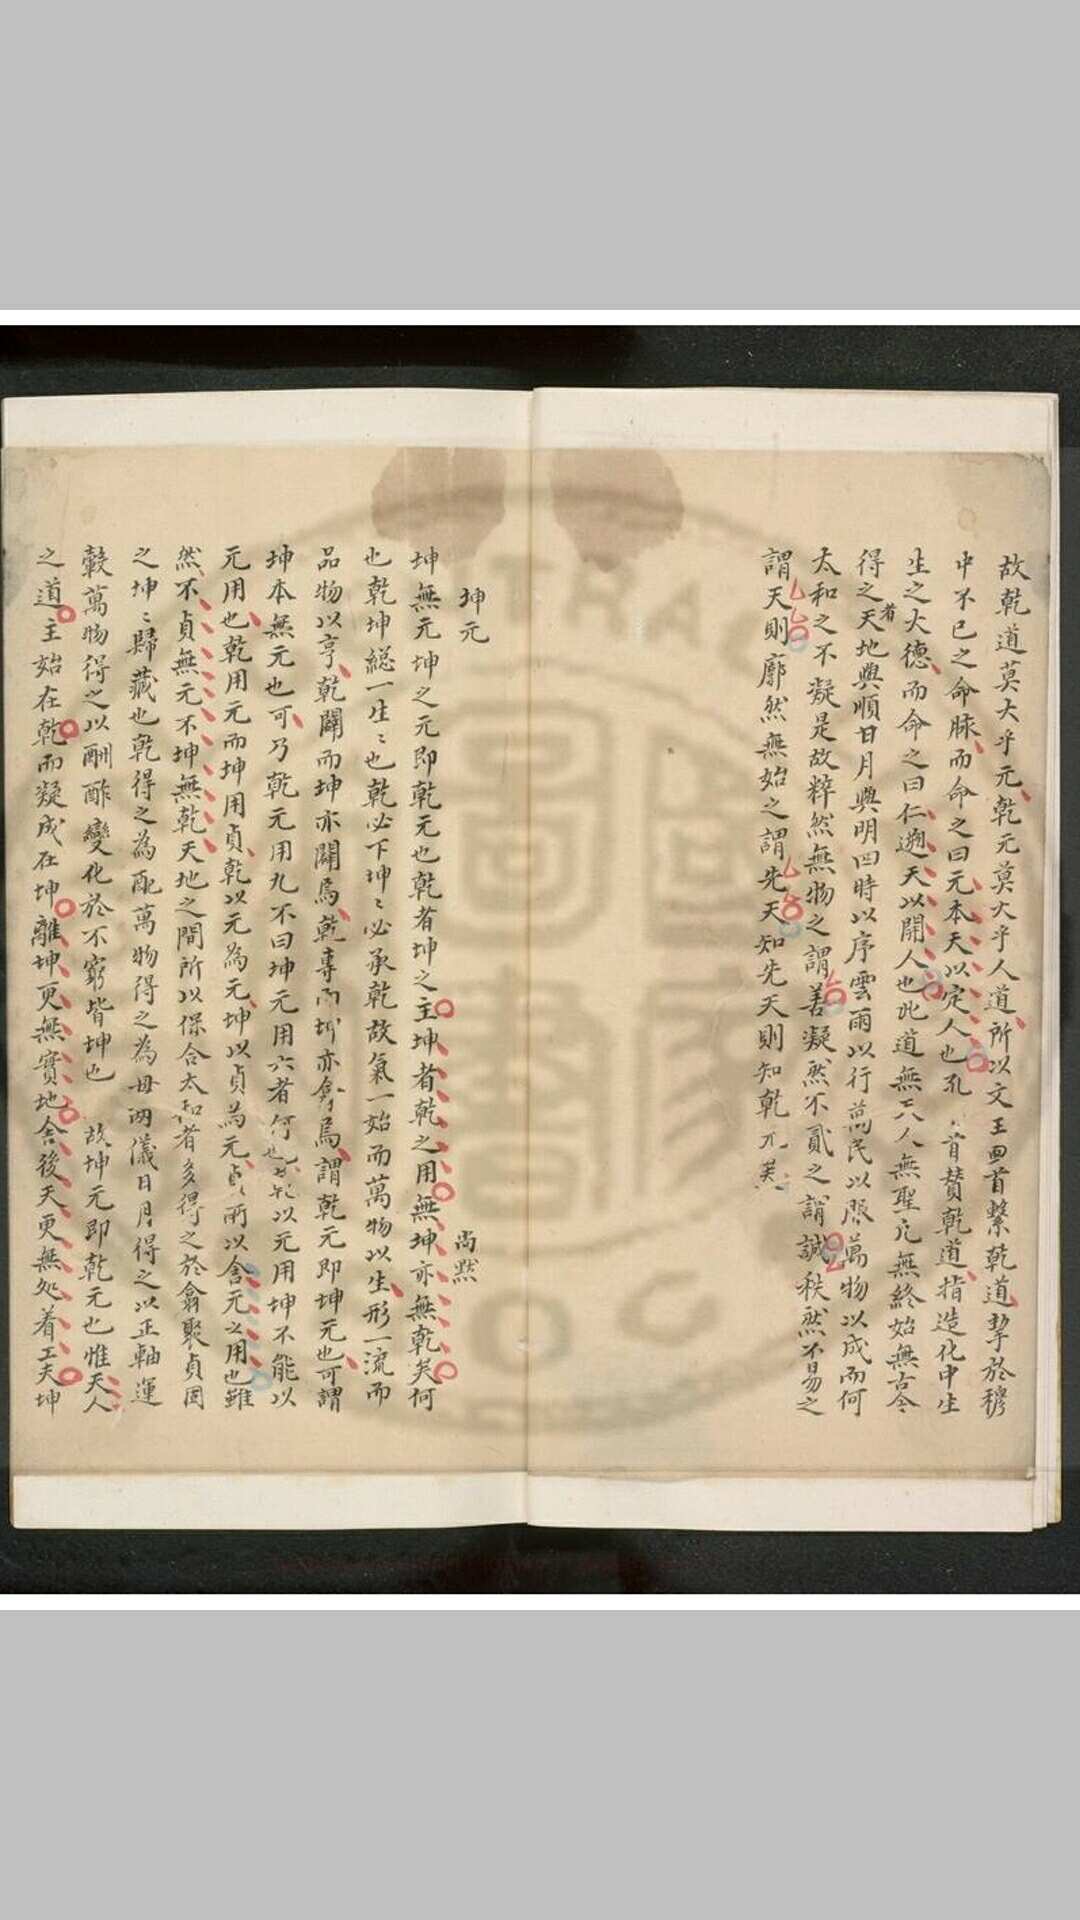 故乾道莫大乎元乾元莫大乎人道所以文王畫首繫乾道挈於穆
中不已之命脉而命之曰元本天以定人也孔首贊乾道指造化中生
生之大德而命之曰仁遡天以開人也此道無人無聖凡無終始無古今
得之者天地與順日月與明四時以序雲雨以行萬民以服萬物以成而何
太和之不凝是故粹然無物之謂善凝然不貳之謂誠秩然不易之
謂天則廓然無始之謂先天知先天則知乾元矣
坤元
尚默
坤無元坤之元即乾元也乾者坤之主坤者乾之用無坤亦無乾矣何
也乾坤總一生〻也乾必下坤〻必承乾故氣一始而萬物以生形一流而
品物以亨乾闢而坤亦闢焉乾專而坤亦翕焉謂乾元即坤元也可謂
坤本無元也可乃乾元用九不曰坤元用六者何也乾以元用坤不能以
元用也乾用元而坤用貞乾以元為元坤以貞為元貞所以含元之用也雖
然不貞無元不坤無乾天地之間所以保合太和者多得之於翕聚貞固
之坤〻歸藏也乾得之為配萬物得之為母兩儀日月得之以正軸運
轂萬物得之以酬酢變化於不窮皆坤也故坤元即乾元也惟天人
之道主始在乾而凝成在坤離坤更無實地舍後天更無処着工夫坤